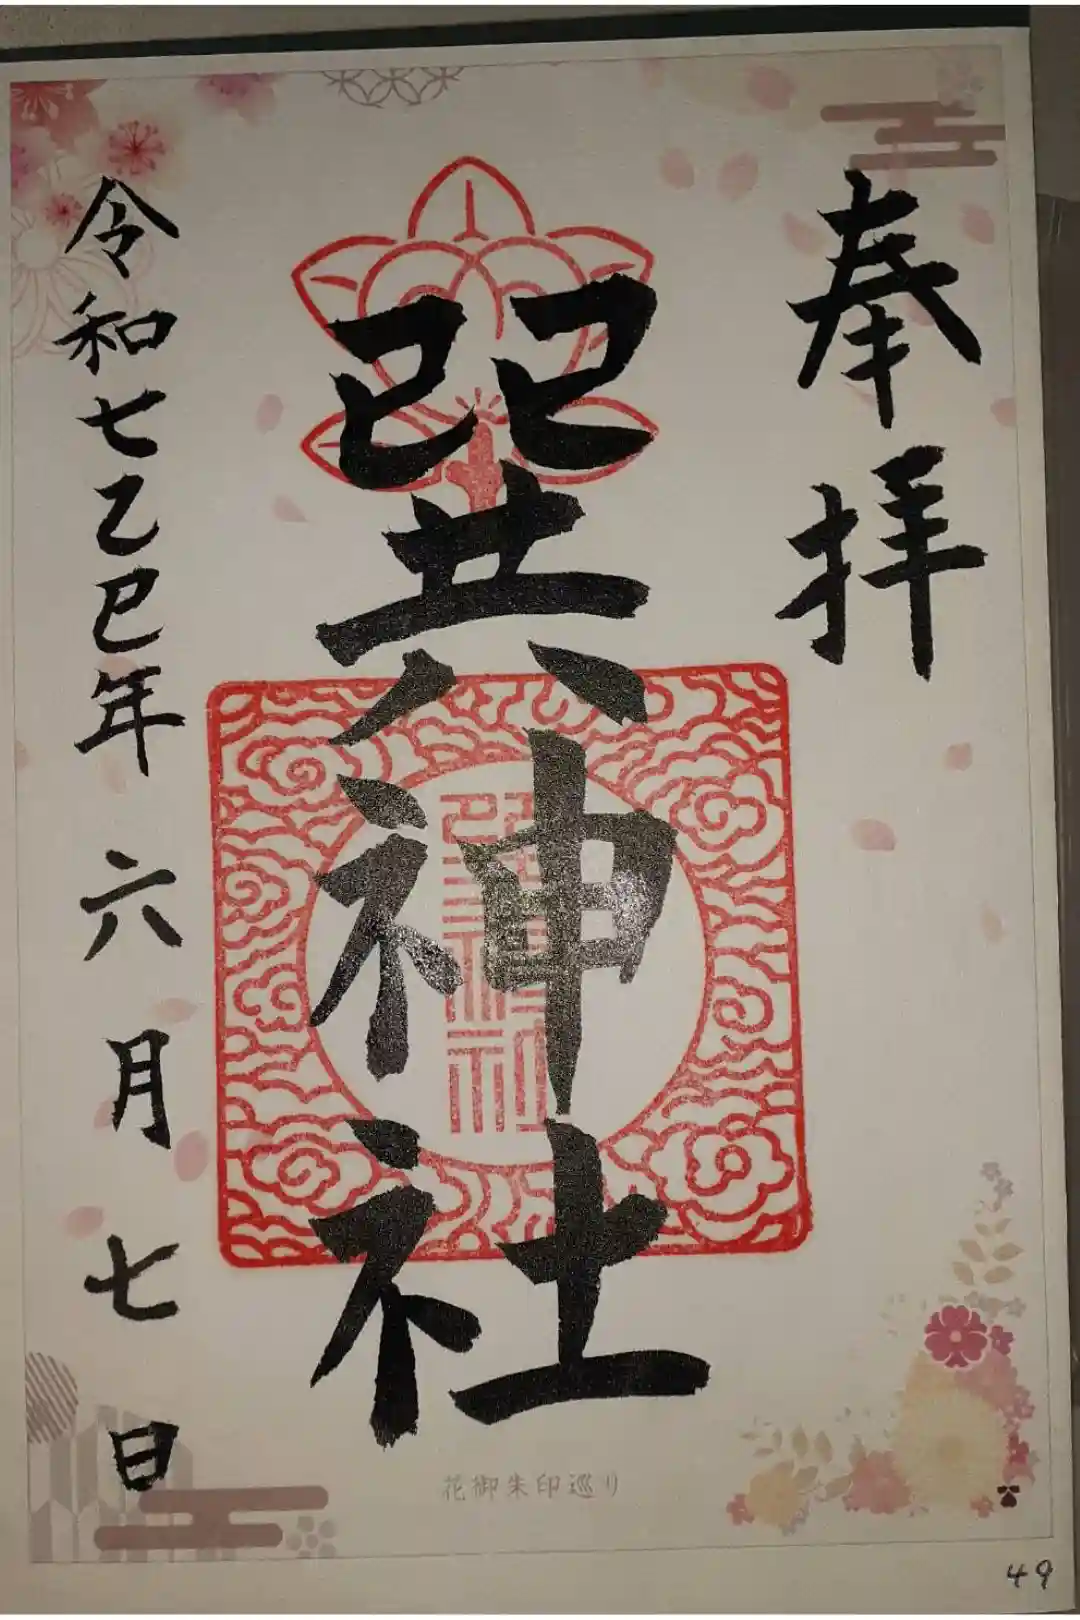 奉拝
巽神社
巽神社
令和七乙巳年六月七日
花御朱印巡り
49